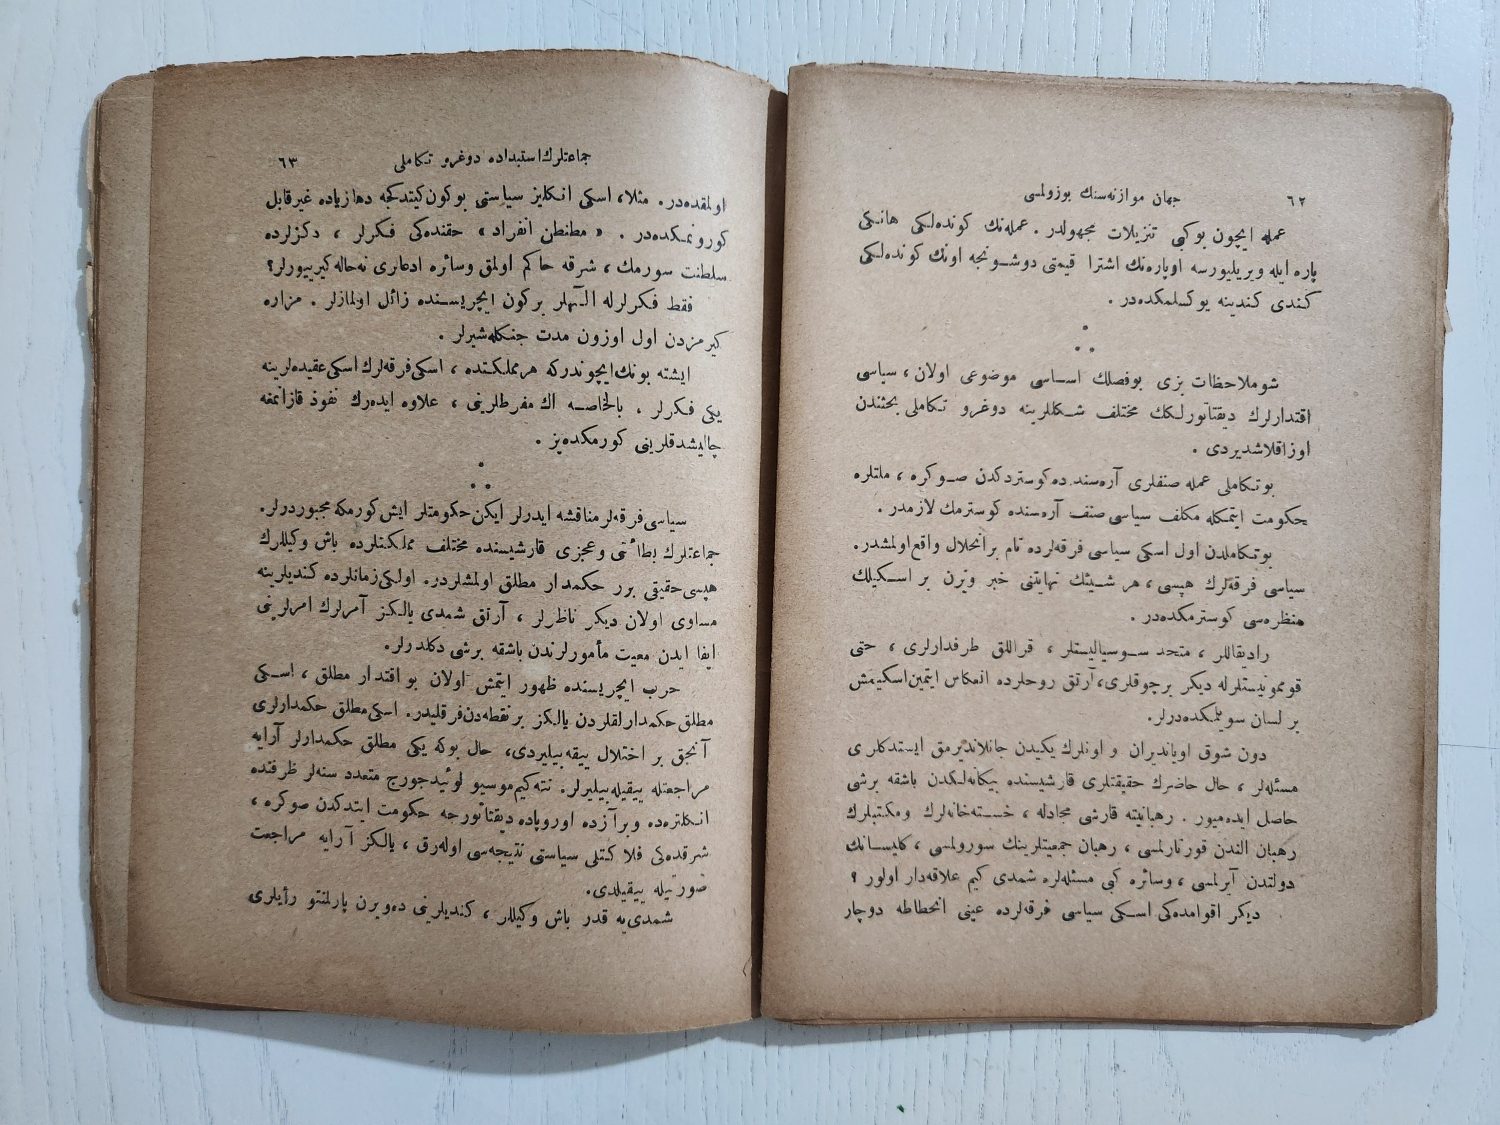 ٦٢
جهان موازنه‌سنك بوزولمسی
عمله ایچون بوكبی تنزیلات مجهولدر. عمله‌نك كونده‌لكی هانكی
پاره ایله ویریلیورسه اوپاره‌نك اشترا قیمتی دوشونجه اونك كونده‌لكی
كندی كندینه یوكسلمكده‌در.
شوملاحظات بزی بوفصلك اساسی موضوعی اولان، سیاسی
اقتدارلرك دیقتاتورلكك مختلف شكللرینه دوغرو تكاملی بحثندن
اوزاقلاشدیردی.
بوتكاملی عمله صنفلری آره‌سنده كوستردكدن صوكره، ملتلره
حكومت ایتمكله مكلف سیاسی صنف آره‌سنده كوسترمك لازمدر.
بوتكاملدن اول اسكی سیاسی فرقه‌لرده تام برانحلال واقع‌اولمشدر.
سیاسی فرقه‌لرك هپسی، هر شیئك نهایتنی خبر ویرن بر اسكیلك
منظره‌سی كوسترمكده‌در.
رادیقاللر، متحد سوسیالیستلر، قراللق طرفدارلری، حتی
قومونیستلرله دیكر برچوقلری، آرتق روحلرده انعكاس ایتمین اسكیمش
بر لسان سویلمكده‌درلر.
دون شوق اویاندیران و اونلرك یكیدن جانلاندیرمق ایستدكلری
مسئله‌لر، حال حاضرك حقیقتلری قارشیسنده بیكانه‌لكدن باشقه برشی
حاصل ایده‌میور. رهبانیته قارشی مجادله، خسته‌خانه‌لرك ومكتبلرك
رهبان الندن قورتارلمسی، رهبان جمعیتلرینك سورولمسی، كلیسانك
دولتدن آیرلمسی، وسائره كبی مسئله‌لره شمدی كیم علاقه‌دار اولور؟
دیكر اقوامده‌كی اسكی سیاسی فرقه‌لرده عینی انحطاطه دوچار
جماعتلرك استبداده دوغرو تكاملی
٦٣
اولمقده‌در. مثلا، اسكی انكلیز سیاستی بوكون كیتدكجه دهازیاده غیرقابل
كورونمكده‌در. «مطنطن انفراد» حقنده‌كی فكرلر، دكزلرده
سلطنت سورمك، شرقه حاكم اولمق وسائره ادعاری نه‌حاله‌كیرییورلر؟
فقط فكرلرله الٓهلر بركون ایچریسنده زائل اولمازلر. مزاره
كیرمزدن اول اوزون مدت جنكله‌شیرلر.
ایشته بونك‌ایچوندركه هرمملكتده، اسكی فرقه‌لرك اسكی عقیده‌لرینه
یكی فكرلر، بالخاصه اك مفرطلرینی، علاوه ایده‌رك نفوذ قازانمغه
چالیشدقلرینی كورمكده‌یز.
سیاسی فرقه‌لر مناقشه ایدرلر ایكن حكومتلر ایش كورمكه مجبوردرلر.
جماعتلرك بطائتی وعجزی قارشیسنده مختلف مملكتلرده باش وكیللرك
هپسی حقیقی برر حكمدار مطلق اولمشلردر. اولكی زمانلرده كندیلرینه
مساوی اولان دیكر ناظرلر، آرتق شمدی یالكز آمرلرك امرلرینی
ایفا ایدن معیت مأمورلرندن باشقه برشی دكلدرلر.
حرب ایچریسنده ظهور ایتمش اولان بو اقتدار مطلق، اسكی
مطلق حكمدارلقلردن یالكز برنقطه‌دن فرقلیدر. اسكی مطلق حكمدارلری
آنجق بر اختلال ییقه‌بیلیردی، حال بوكه یكی مطلق حكمدارلر آرایه
مراجعتله ییقیله‌بیلیرلر. نته‌كیم موسیو لوئید جورج متعدد سنه‌لر ظرفنده
انكلتره‌ده وبرآزده اوروپاده دیقتاتورجه حكومت ایتدكدن صوكره،
شرقده‌كی فلاكتلی سیاستی نتیجه‌سی اوله‌رق، یالكز آرایه مراجعت
صورتیله ییقیلدی.
شمدی‌یه قدر باش وكیللر، كندیلرینی ده‌ویرن پارلمنتو رأیلری